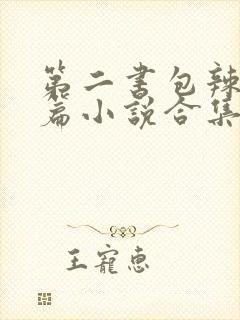 第二书包辣
篇小说合集
王宠惠